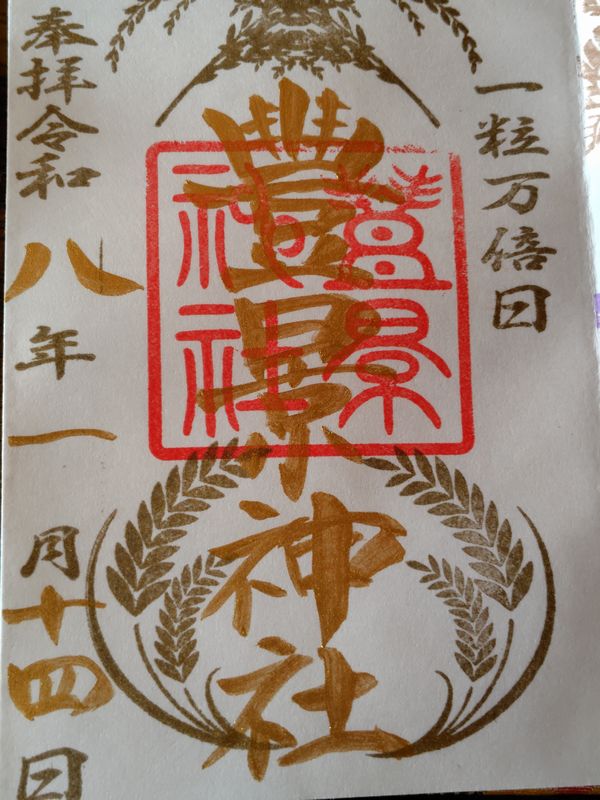 一粒万倍日
豐景神社
豊景
神社
奉拝令和八年一月十四日